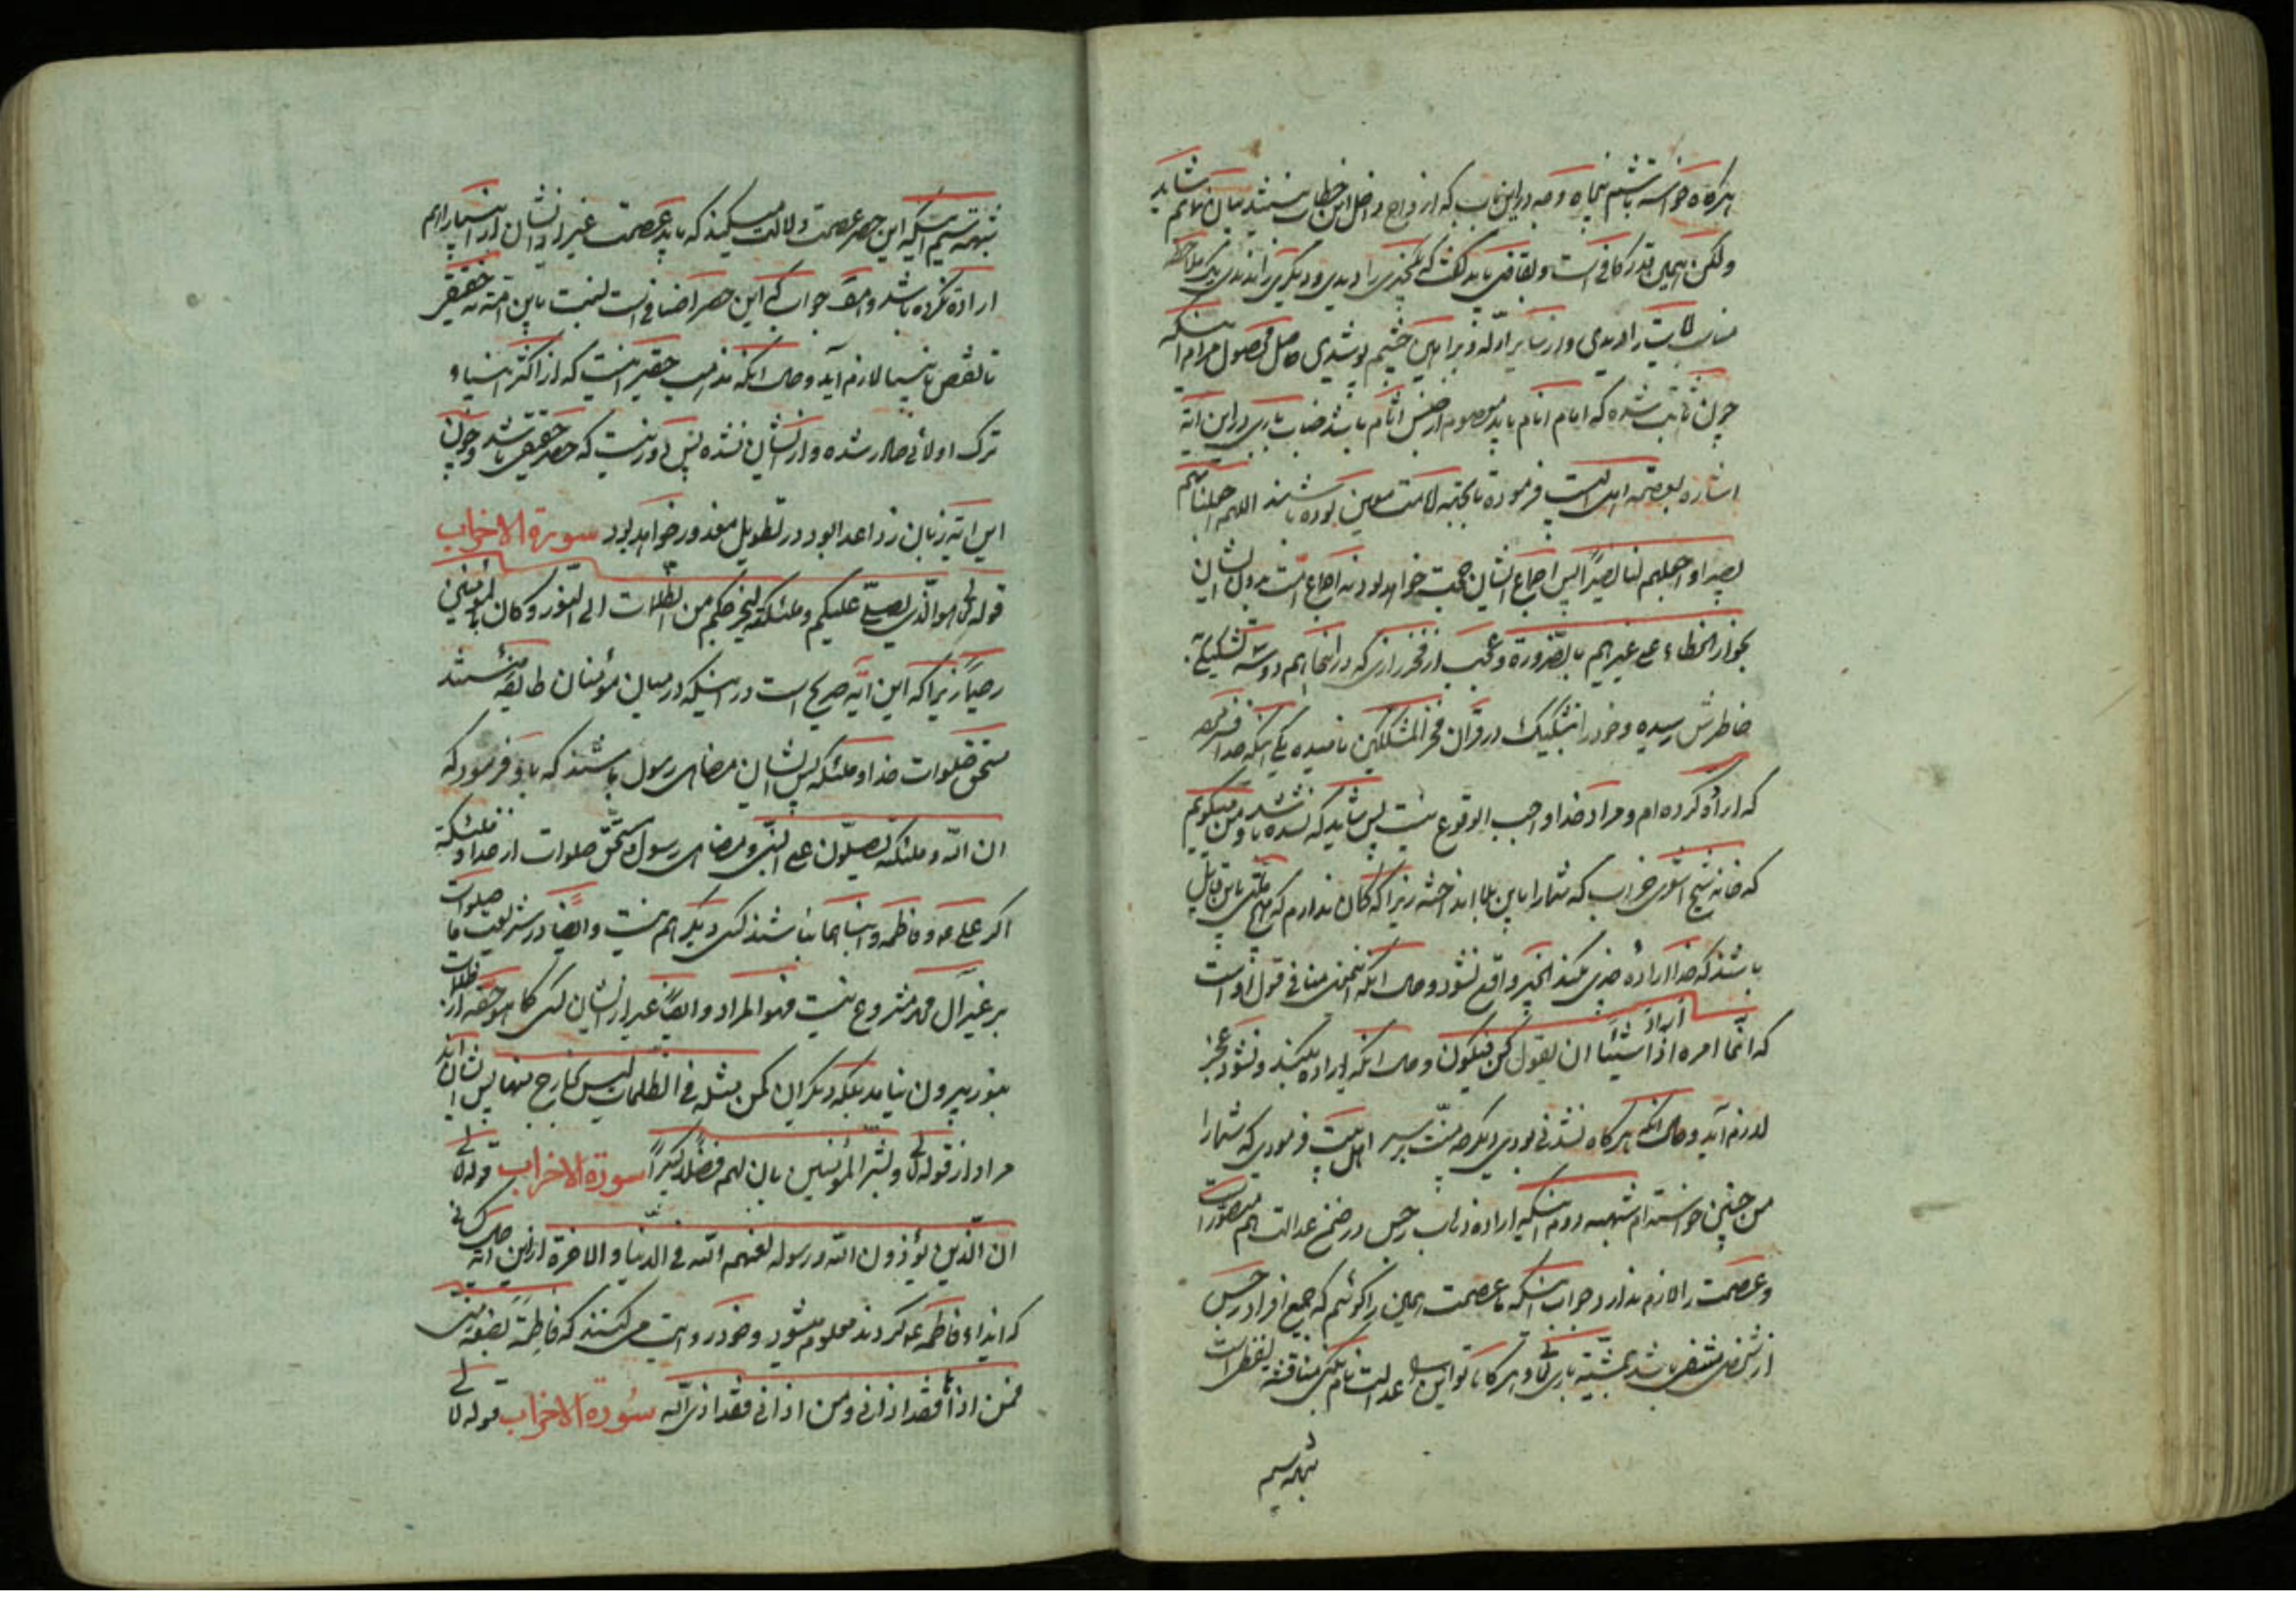 هرگاه خواسته باشم پنجاه وجه در این باب که ازواج داخل این خطاب نیستند بیان نمایم شاید
ولکن همین قدر کافی است و بقاضی باید گفت که چیزی را دیدی و دیگری را ندیدی یک ملاحظه
مناسبت را دیدی و از سایر ادله و براهین چشم پوشیدی حاصل محصول مرام اینکه
چون ثابت شده که امام انام باید معصوم از جنس اثام باشد جناب باری در این آیه
اشاره بعصمة اهل البیت فرموده تا بجهة امامت معین بوده باشند اللهم اجعلنا لهم
نصیرا و اجعلهم لنا نصیراً پس اجماع ایشان حجت خواهد بود نه اجماع امت بدون ایشان
بجواز الخطاء علی غیرهم بالضرورة و عجب از فخر رازی که در اینجا هم دو شبه تشکیکیه
خاطرش رسیده و خود را بتشکیک در قرآن فخر المشککین نامیده یکی اینکه خدا فرموده
که اراده کرده ام و مراد خدا واجب الوقوع نیست پس شاید که نشده باشد و من میگویم
که خانه شیخ اشعری خراب که شما را باین بلا انداخته زیرا که گمان ندارم که هیچ ملتی باین قایل
باشند که خدا اراده چیزی بکند آنچیز واقع نشود و حال آنکه این معنی منافی قول او است
که انما امره اذا اراد شیئا ان یقول کن فیکون و حال آنکه اراده بکند و نشود عجز
لازم آید و حال آنکه هرگاه نشدنی بودی دیگر چه منت بر سر اهل بیت فرمودی که شما را
من چنین خواسته ام شبهه دوم اینکه اراده ذهاب رجس در ضمن عدالت هم متصور است
و عصمت را لازم ندارد جواب اینکه ما عصمت همین را گوئیم که جمیع افراد رجس
از شخص منتفی باشد بمشیة باری تعالی و هرگاه تو این را عدالت نام بکنی مناقشه لفظی است
شبهه سیم
شبهه سیم اینکه این حصر عصمت دلالت میکند که باید عصمت غیر از ایشان از انبیا را هم
اراده نکرده باشد و امّا جواب که این حصر اضافی است نسبت باین امة نه حقیقی
تا نقص بانبیا لازم آید و حال آنکه مذهب حقیر اینست که از اکثر انبیا و
ترک اولائی صادر شده و از ایشان نشده پس دور نیست که حصر حقیقی باشد و چون
این آیه زبان زد اعدا بود در تطویل معذور خواهد بود سورة الاحزاب
قوله تعالی هو الّذی یصلّی علیکم و ملئکته لیخرجکم من الظلمات الی النّور و کان بالمؤمنین
رحیماً زیرا که این آیه صریح است در اینکه در میان مؤمنان طایفه هستند
مستحق صلوات خدا و ملئکه پس ایشان مضاهی رسول باشند که باو فرمود که
ان اللّه و ملئکته یصلّون علی النّبی و مضاهی رسول و مستحق صلوات از خدا و ملئکه
اگر علی ع و فاطمه و ابناهما نباشند کسی دیگر هم نیست و ایضا در شریعت ما صلوات
بر غیر آل محمد مشروع نیست فهو المراد و ایضاً غیر از ایشان کسی کما هو حقه از ظلمات
بنور بیرون نیامد بلکه دیگران کمن مثله فی الظلمات لیس بخارج منها پس ایشان اند
مراد از قوله تعالی و بشر المؤمنین بان لهم فضلاً کبیراً سورة الاحزاب قوله تعالی
ان الّذین یؤذون اللّه و رسوله لعنهم اللّه فی الدنیا و الآخرة از این آیه حال کسانی
که ایذاء فاطمه ع کردند معلوم میشود و خود روایت می کنند که فاطمة بضعة منی
فمن اذاها فقد اذانی و من اذانی فقد اذی اللّه سورة الاحزاب قوله تعالی